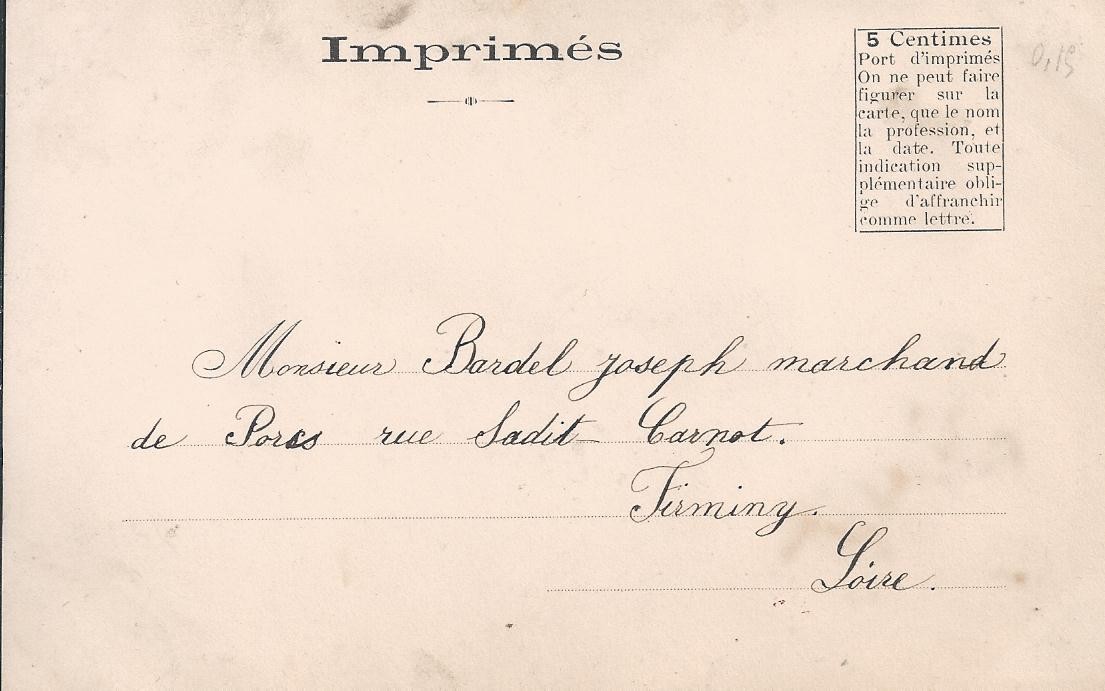 Imprimés
5 Centimes
Port d'imprimés
On ne peut faire
figurer sur la
carte, que le nom
la profession, et
la date. Toute
indication sup-
plémentaire obli-
ge d'affranchir
comme lettre.
0,15
Monsieur Bardel joseph marchand
de Porcs rue Sadit-Carnot.
Firminy.
Loire.